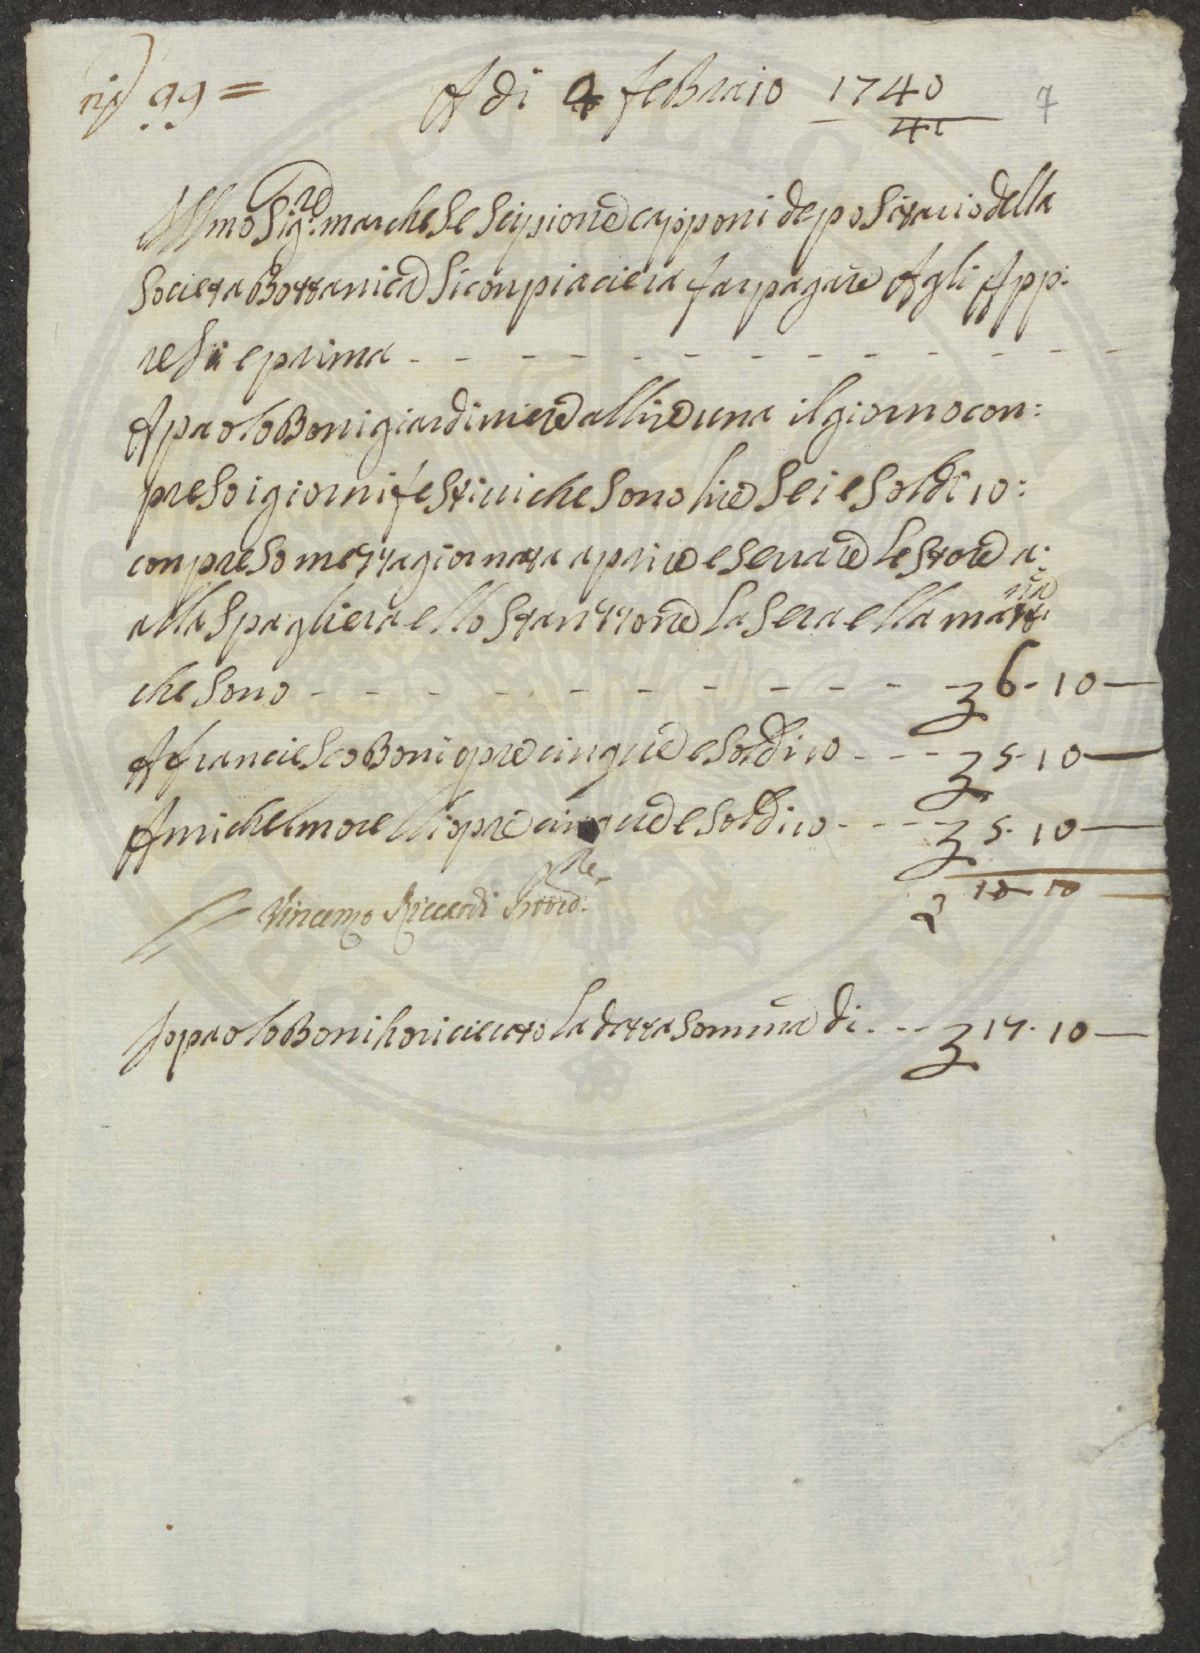 n° 99 =
A di 4 febraio 1740
41
7
Illmo Sigre marchese Scipione capponi depositario della
Societa Bottanica Si conpiaciera far pagare Agli App:
resi e prima
A paolo Boni giardiniere allire una il giorno con:
preso i giorni festivi che sono lire Sei e Soldi 10:
conpreso mezza giornata aprire e serrare le store a:
alla Spagliera ello stanzzone la sera ella mattina
che sono 6 - 10
A franciesco Boni opre cinque e soldi 10 5 - 10
A michel morelli opre cinque e soldi 10 5 - 10
Vincenzo Riccardi Provre 10
Io paolo Boni ho riceuto la detta somma di 17 - 10